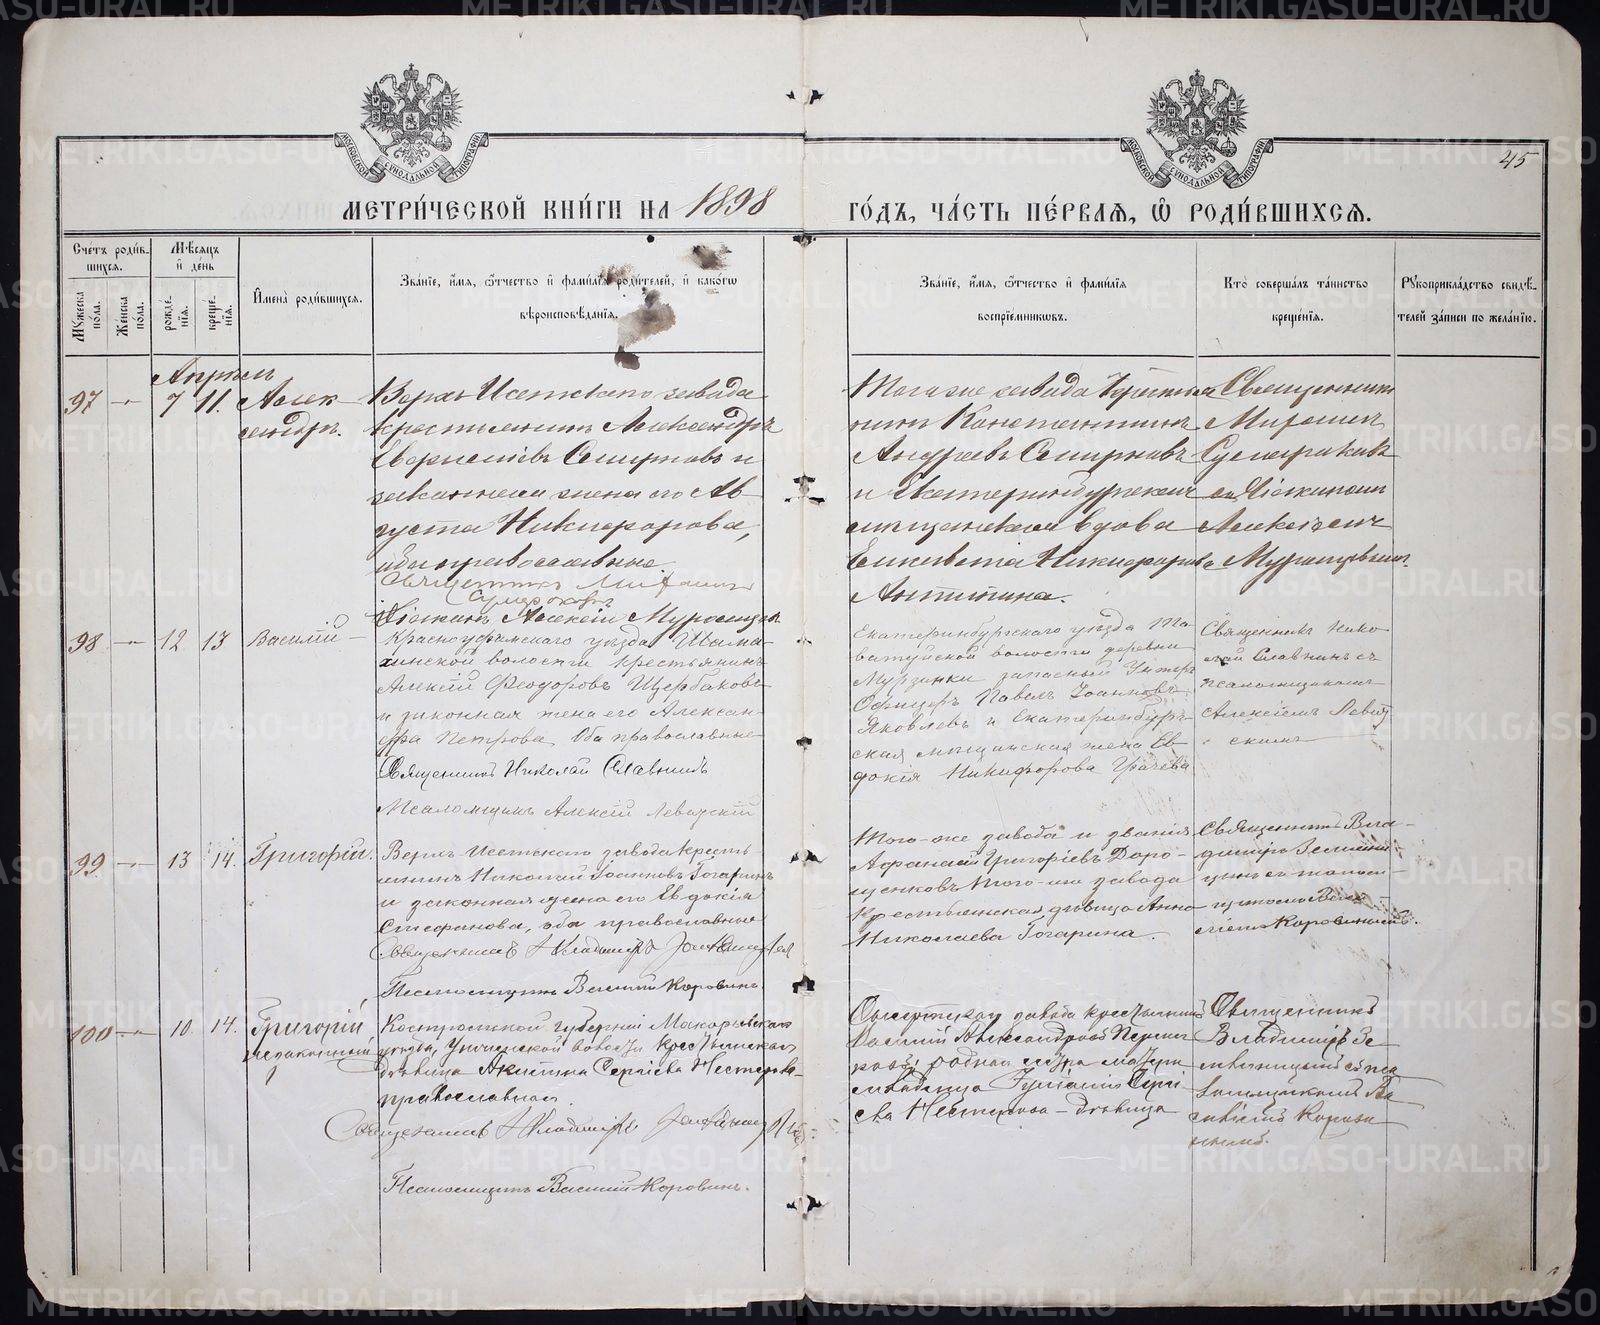 45
МЕТРИ́ЧЕСКОЙ КНИ́ГИ НА 1898
ГО́ДЪ, ЧА́СТЬ ПЕ́РВАѦ, Ѡ҆ РОДИ́ВШИХСѦ.
Сче́тъ роди́в-
шихся.
Мѣ́сяцъ
и҆ де́нь
Му́жеска по́ла.
Же́нска по́ла.
рожде́нїя.
креще́нїя.
И҆мена̀ роди́вшихся.
Зва́нїе, и҆́мя, ѻ҆́тчество и҆ фами́лїя роди́телей, и҆ како́гѡ
вѣроисповѣ́данїя.
Зва́нїе, и҆́мя, ѻ҆́тчество и҆ фами́лїя
воспрїе́мниковъ.
Кто̀ соверша́лъ та́инство
креще́нїя.
Рꙋкоприкла́дство свидѣ́-
телей за́писи по жела́нїю.
Апрѣль
97 - 7 11. Алек-
сандръ.
Верхъ Исетскаго завода
крестьянинъ Александръ
Смирновъ и
законная жена его Ав-
густа Никифорова,
оба православные.
Священникъ
Діаконъ Алексій
Тогоже завода крестья
нинъ Константинъ
Андреевъ Смирновъ
и Екатеринбургская
мѣщанская вдова
Елисавета Никифорова
Антипина.
Священникъ
съ Діакономъ
Алексѣемъ
98 - 12 13 Василій
Красноуфимскаго уѣзда Шема-
хинской волости крестьянинъ
Алексій Феодоровъ Щербаковъ
и законная жена его Алексан-
дра Петрова, Оба православные
Священникъ Николай Славнинъ
Псаломщикъ Алексій Левицкій
Екатеринбургскаго уѣзда Та-
ватуйской волости деревни
Мурзинки запасный Унтеръ
Офицеръ Павелъ Іоанновъ
Яковлевъ и Екатеринбург-
ская мѣщанская жена Ев-
докія Никифорова Грачева
Священникъ Нико-
лай Славнинъ съ
псаломщикомъ
Алексіемъ Левиц
скимъ
99 - 13 14. Григорій.
Верхъ Исетскаго завода кресть-
янинъ Николай Іоанновъ Гогаринъ
и законная жена его Евдокія
Стефанова, оба православные
Священникъ Владиміръ
Псаломщикъ Василій Коровинъ.
Того-же завода и званія
Афанасій Григоріевъ Доро-
щенковъ того-же завода
Крестьянская дѣвица Анна
Николаева Гогарина.
Священникъ Вла-
диміръ Земляни-
цынъ съ псалом-
щикомъ Васи
ліемъ Коровинымъ.
100 - 10. 14. Григорій
незаконный
Костромской губерніи Макарьевскаго
уѣзда, волости крестьянская
дѣвица Акилина Сергіева Нестерова
православная.
Священникъ Владиміръ
Псаломщикъ Василій Коровинъ.
завода крестьянинъ
Василій Александровъ
родная сестра матери
младенца Сергі
ева Нестерова - дѣвица
Священникъ
Владиміръ Зе-
мляницынъ съ пса
ломщикомъ Ва
силіемъ Корови
нымъ.
METRIKI.GASO-URAL.RU